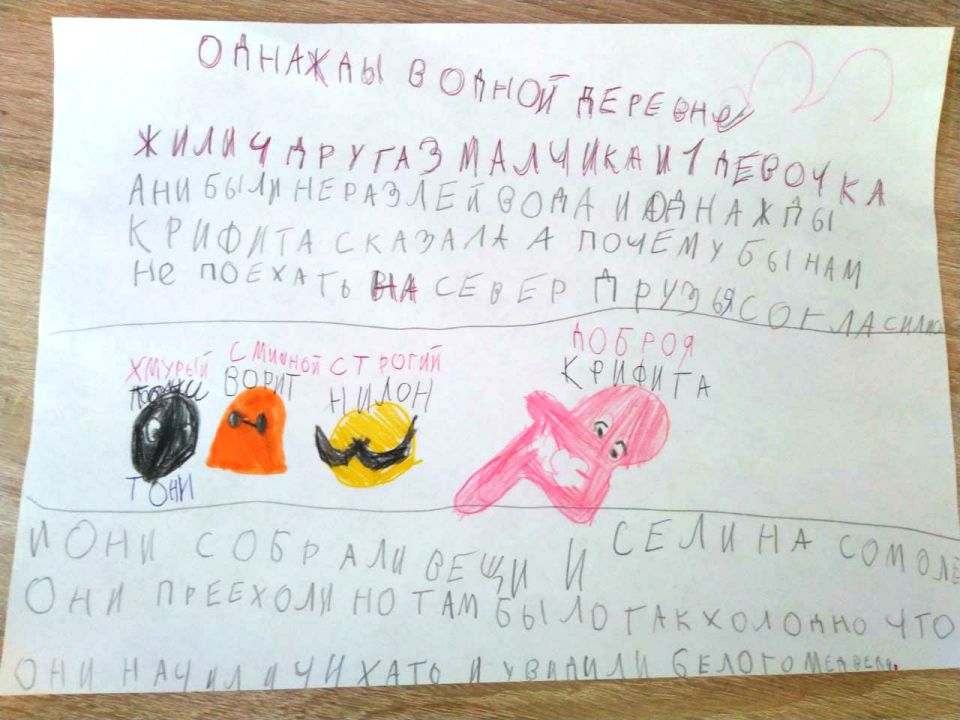 ОДНАЖДЫ В ОДНОЙ ДЕРЕВНЕ
ЖИЛИ 4 ДРУГА 3 МАЛЧИКА И 1 ДЕВОЧКА
АНИ БЫЛИ НЕРАЗЛЕЙ ВОДА И ОДНАЖДЫ
КРИФИТА СКАЗАЛА А ПОЧЕМУ БЫ НАМ
НЕ ПОЕХАТЬ НА СЕВЕР ДРУЗЬЯ СОГЛАСИЛИС
ДОБРОЯ
ХМУРЫЙ СМИШНОЙ СТРОГИЙ КРИФИТА
ВОРИТ НИЛОН
ТОНИ
И ОНИ СОБРАЛИ ВЕЩИ И СЕЛИ НА СОМОЛЕ
ОНИ ПРЕЕХОЛИ НО ТАМ БЫЛО ТАК ХОЛОДНО ЧТО
ОНИ НАЧИЛИ ЧИХАТЬ И УВИДИЛИ БЕЛОГО МЕДВЕДЯ.